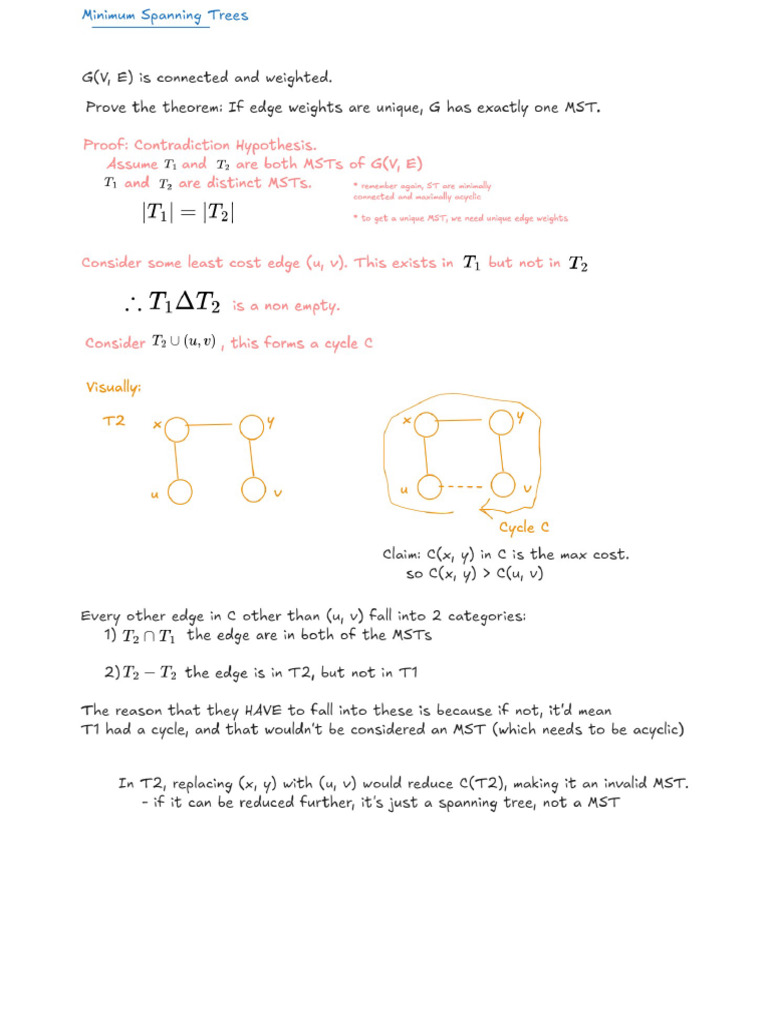 Minimum Spanning Trees
G(V, E) is connected and weighted.
Prove the theorem: If edge weights are unique, G has exactly one MST.
Proof: Contradiction Hypothesis.
Assume T₁ and T₂ are both MSTs of G(V, E)
T₁ and T₂ are distinct MSTs.
* remember again, ST are minimally
connected and maximally acyclic
|T₁| = |T₂|
* to get a unique MST, we need unique edge weights
Consider some least cost edge (u, v). This exists in T₁ but not in T₂
∴ T₁ΔT₂ is a non empty.
Consider T₂ ∪ (u, v) , this forms a cycle C
Visually:
T2
x
y
u
v
x
y
u
v
Cycle C
Claim: C(x, y) in C is the max cost.
so C(x, y) > C(u, v)
Every other edge in C other than (u, v) fall into 2 categories:
1) T₂ ∩ T₁ the edge are in both of the MSTs
2) T₂ − T₂ the edge is in T2, but not in T1
The reason that they HAVE to fall into these is because if not, it'd mean
T1 had a cycle, and that wouldn't be considered an MST (which needs to be acyclic)
In T2, replacing (x, y) with (u, v) would reduce C(T2), making it an invalid MST.
- if it can be reduced further, it's just a spanning tree, not a MST